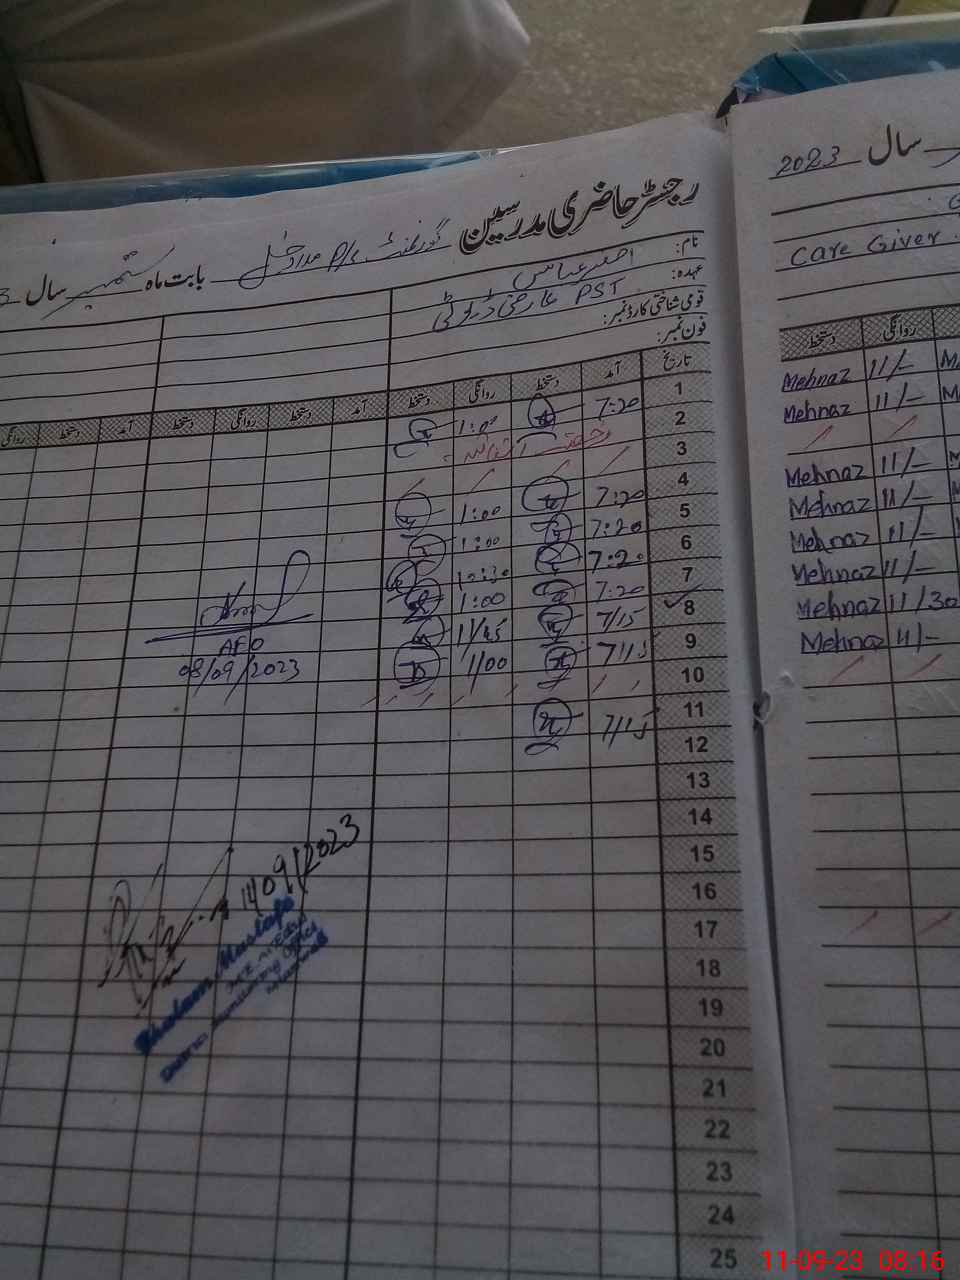 رجسٹر حاضری مدرسین
گورنمنٹ P/S
بابت ماہ ستمبر سال
نام: اصغر عباس
عہدہ: PST عارضی ڈیوٹی
قومی شناختی کارڈ نمبر:
فون نمبر:
تاریخ آمد دستخط روانگی دستخط آمد دستخط روانگی دستخط آمد دستخط روانگی
1 7:20 1:00
2
3
4 7:20 1:00
5 7:20 1:00
6 7:20 12:30
7 7:20 1:00
8 7/15 11/45
9 7/15 1/00
10
11 7/15
12
13
14
15
16
17
18
19
20
21
22
23
24
25
AEO
08/09/2023
14/09/2023
Ghulam Mustafa
سال 2023
Care Giver
روانگی دستخط
Mehnaz 11/-
Mehnaz 11/-
Mehnaz 11/-
Mehnaz 11/-
Mehnaz 11/-
Mehnaz 11/-
Mehnaz 11/30
Mehnaz 11/-
11-09-23 08:16